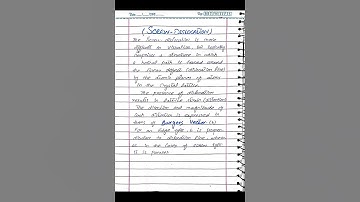 (SCREW - DISLOCATION)
The Screw dislocation is more
difficult to visualise, but basically
comprises a structure in which
a helical path is traced around
the linear defect (dislocation line)
by the atomic planes of atoms
in the crystal lattice.
The presence of dislocation
results in lattice strain (distortion)
The direction and magnitude of
such distortion is expressed in
terms of Burgers Vector (b)
For an edge type, b is perpen
dicular to dislocation line, where
as in the cases of screw type
it is parallel